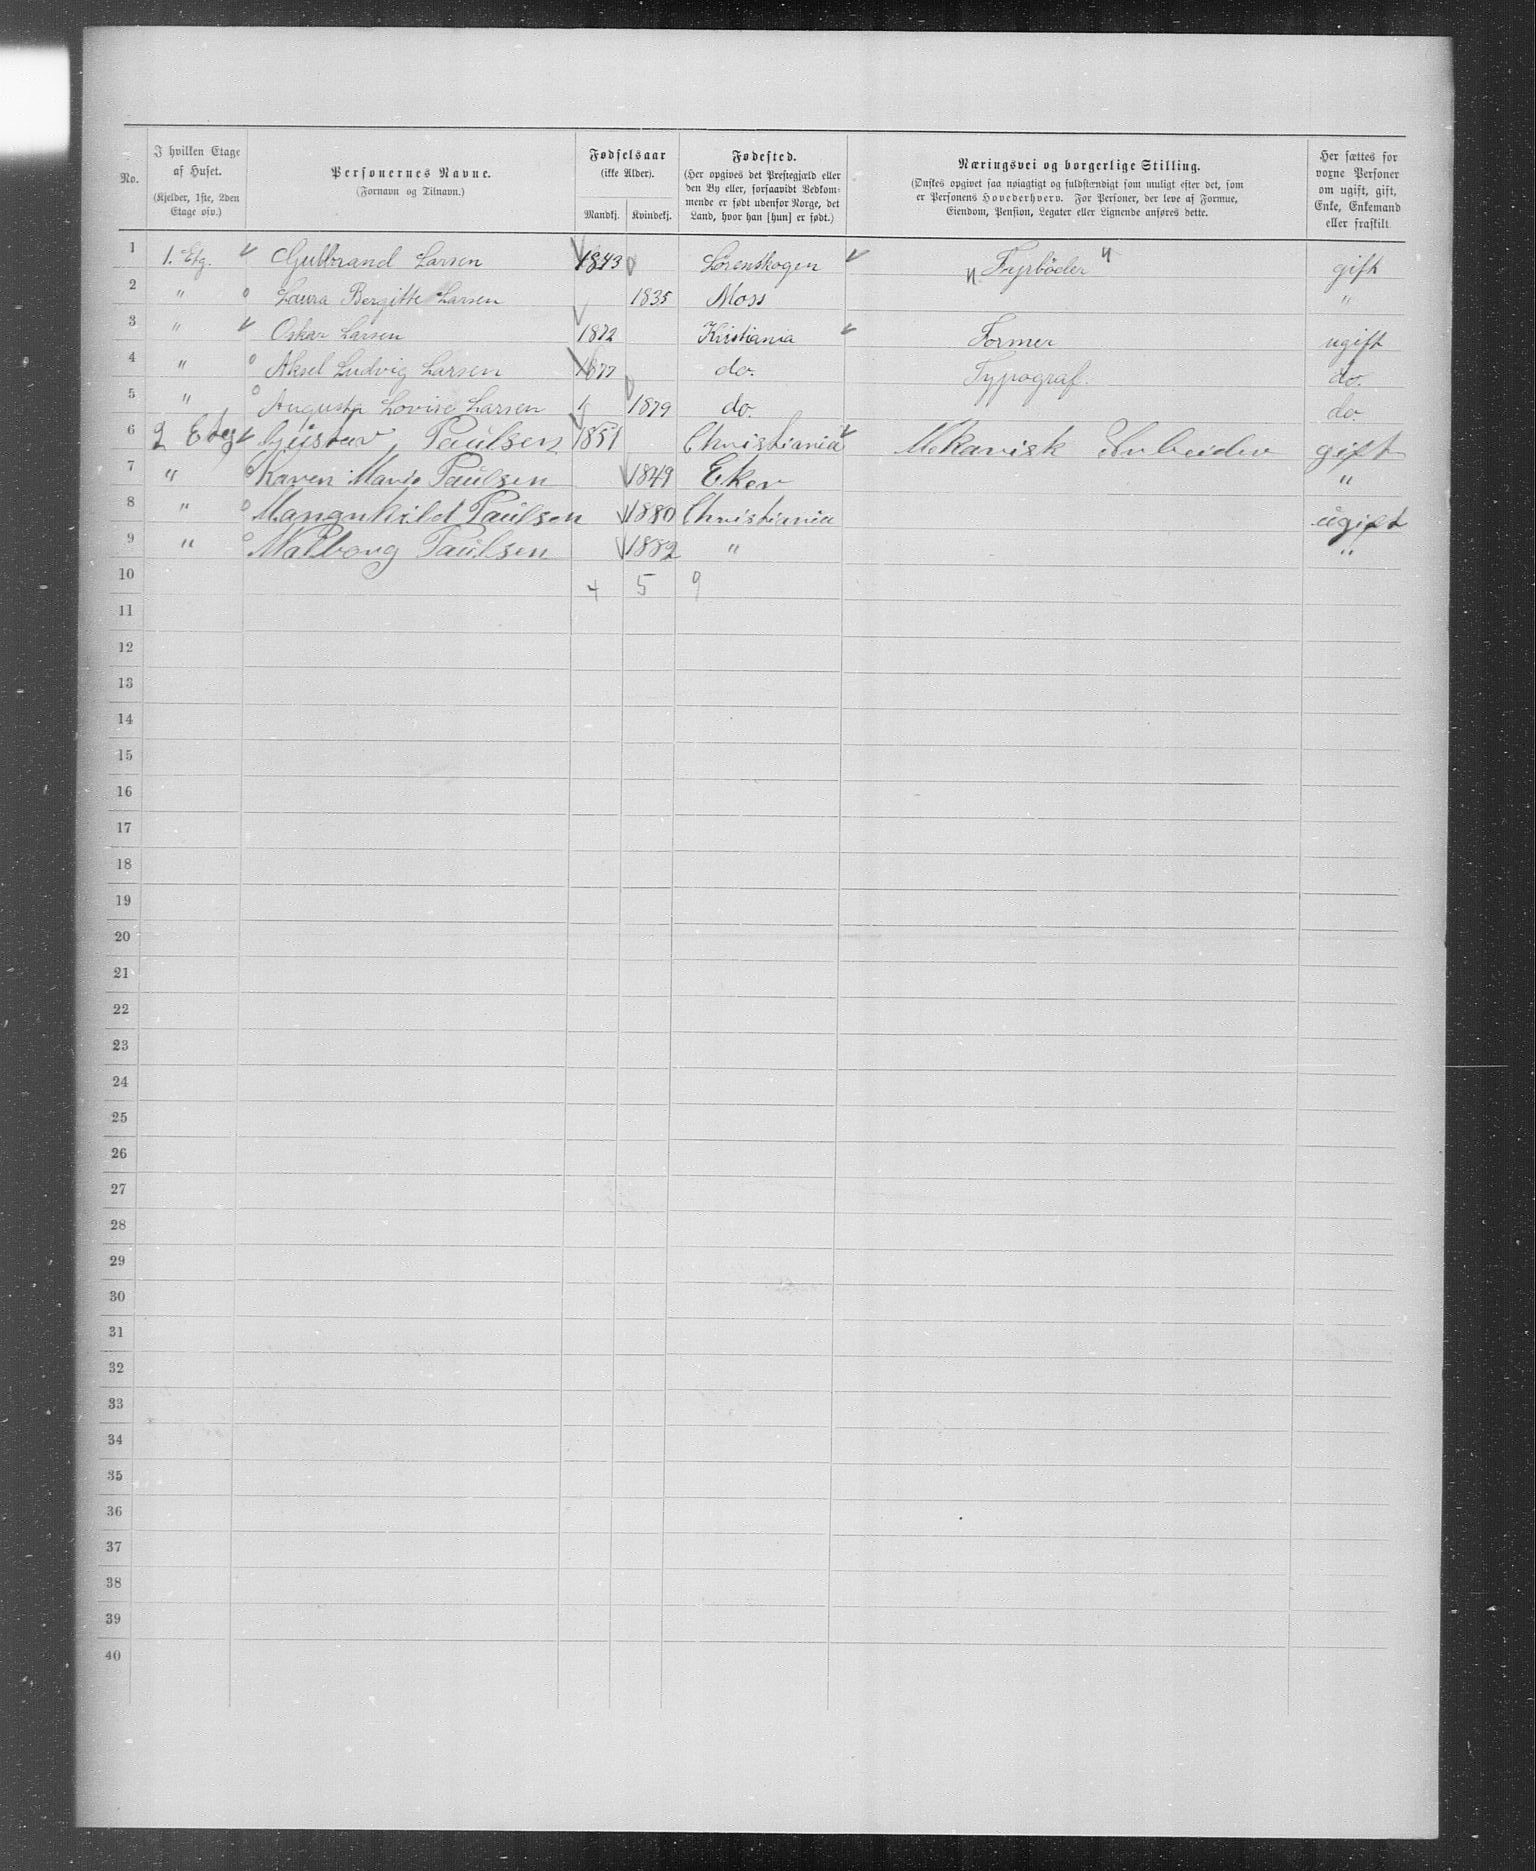 No.
I hvilken Etage af Huset. (Kjelder, 1ste, 2den Etage osv.)
Personernes Navne. (Fornavn og Tilnavn.)
Fødselsaar (ikke Alder). Mandkj. Kvindekj.
Fødested. (Her opgives det Prestegjæld eller den By eller, forsaavidt Vedkommende er født udenfor Norge, det Land, hvor han [hun] er født.)
Næringsvei og borgerlige Stilling. (Ønskes opgivet saa nøiagtigt og fuldstændigt som muligt efter det, som er Personens Hovederhverv. For Personer, der leve af Formue, Eiendom, Pension, Legater eller Lignende anføres dette.
Her sættes for voxne Personer om ugift, gift, Enke, Enkemand eller fraskilt
1 1. Etg. Gulbrand Larsen 1843 Lørenskogen Fyrbøder gift
2 " Laura Bergitte Larsen 1835 Moss "
3 " Oskar Larsen 1872 Kristiania Former ugift
4 " Aksel Ludvig Larsen 1877 do. Typograf. do.
5 " Augusta Lovise Larsen 1879 do. do
6 2 Etg Gustav Paulsen 1851 Christiania Mekanisk Arbeider gift
7 " Karen Marie Paulsen 1849 Eker "
8 " Mangnhild Paulsen 1880 Christiania ugift
9 " Valborg Paulsen 1882 " "
10 4 5 9
11
12
13
14
15
16
17
18
19
20
21
22
23
24
25
26
27
28
29
30
31
32
33
34
35
36
37
38
39
40